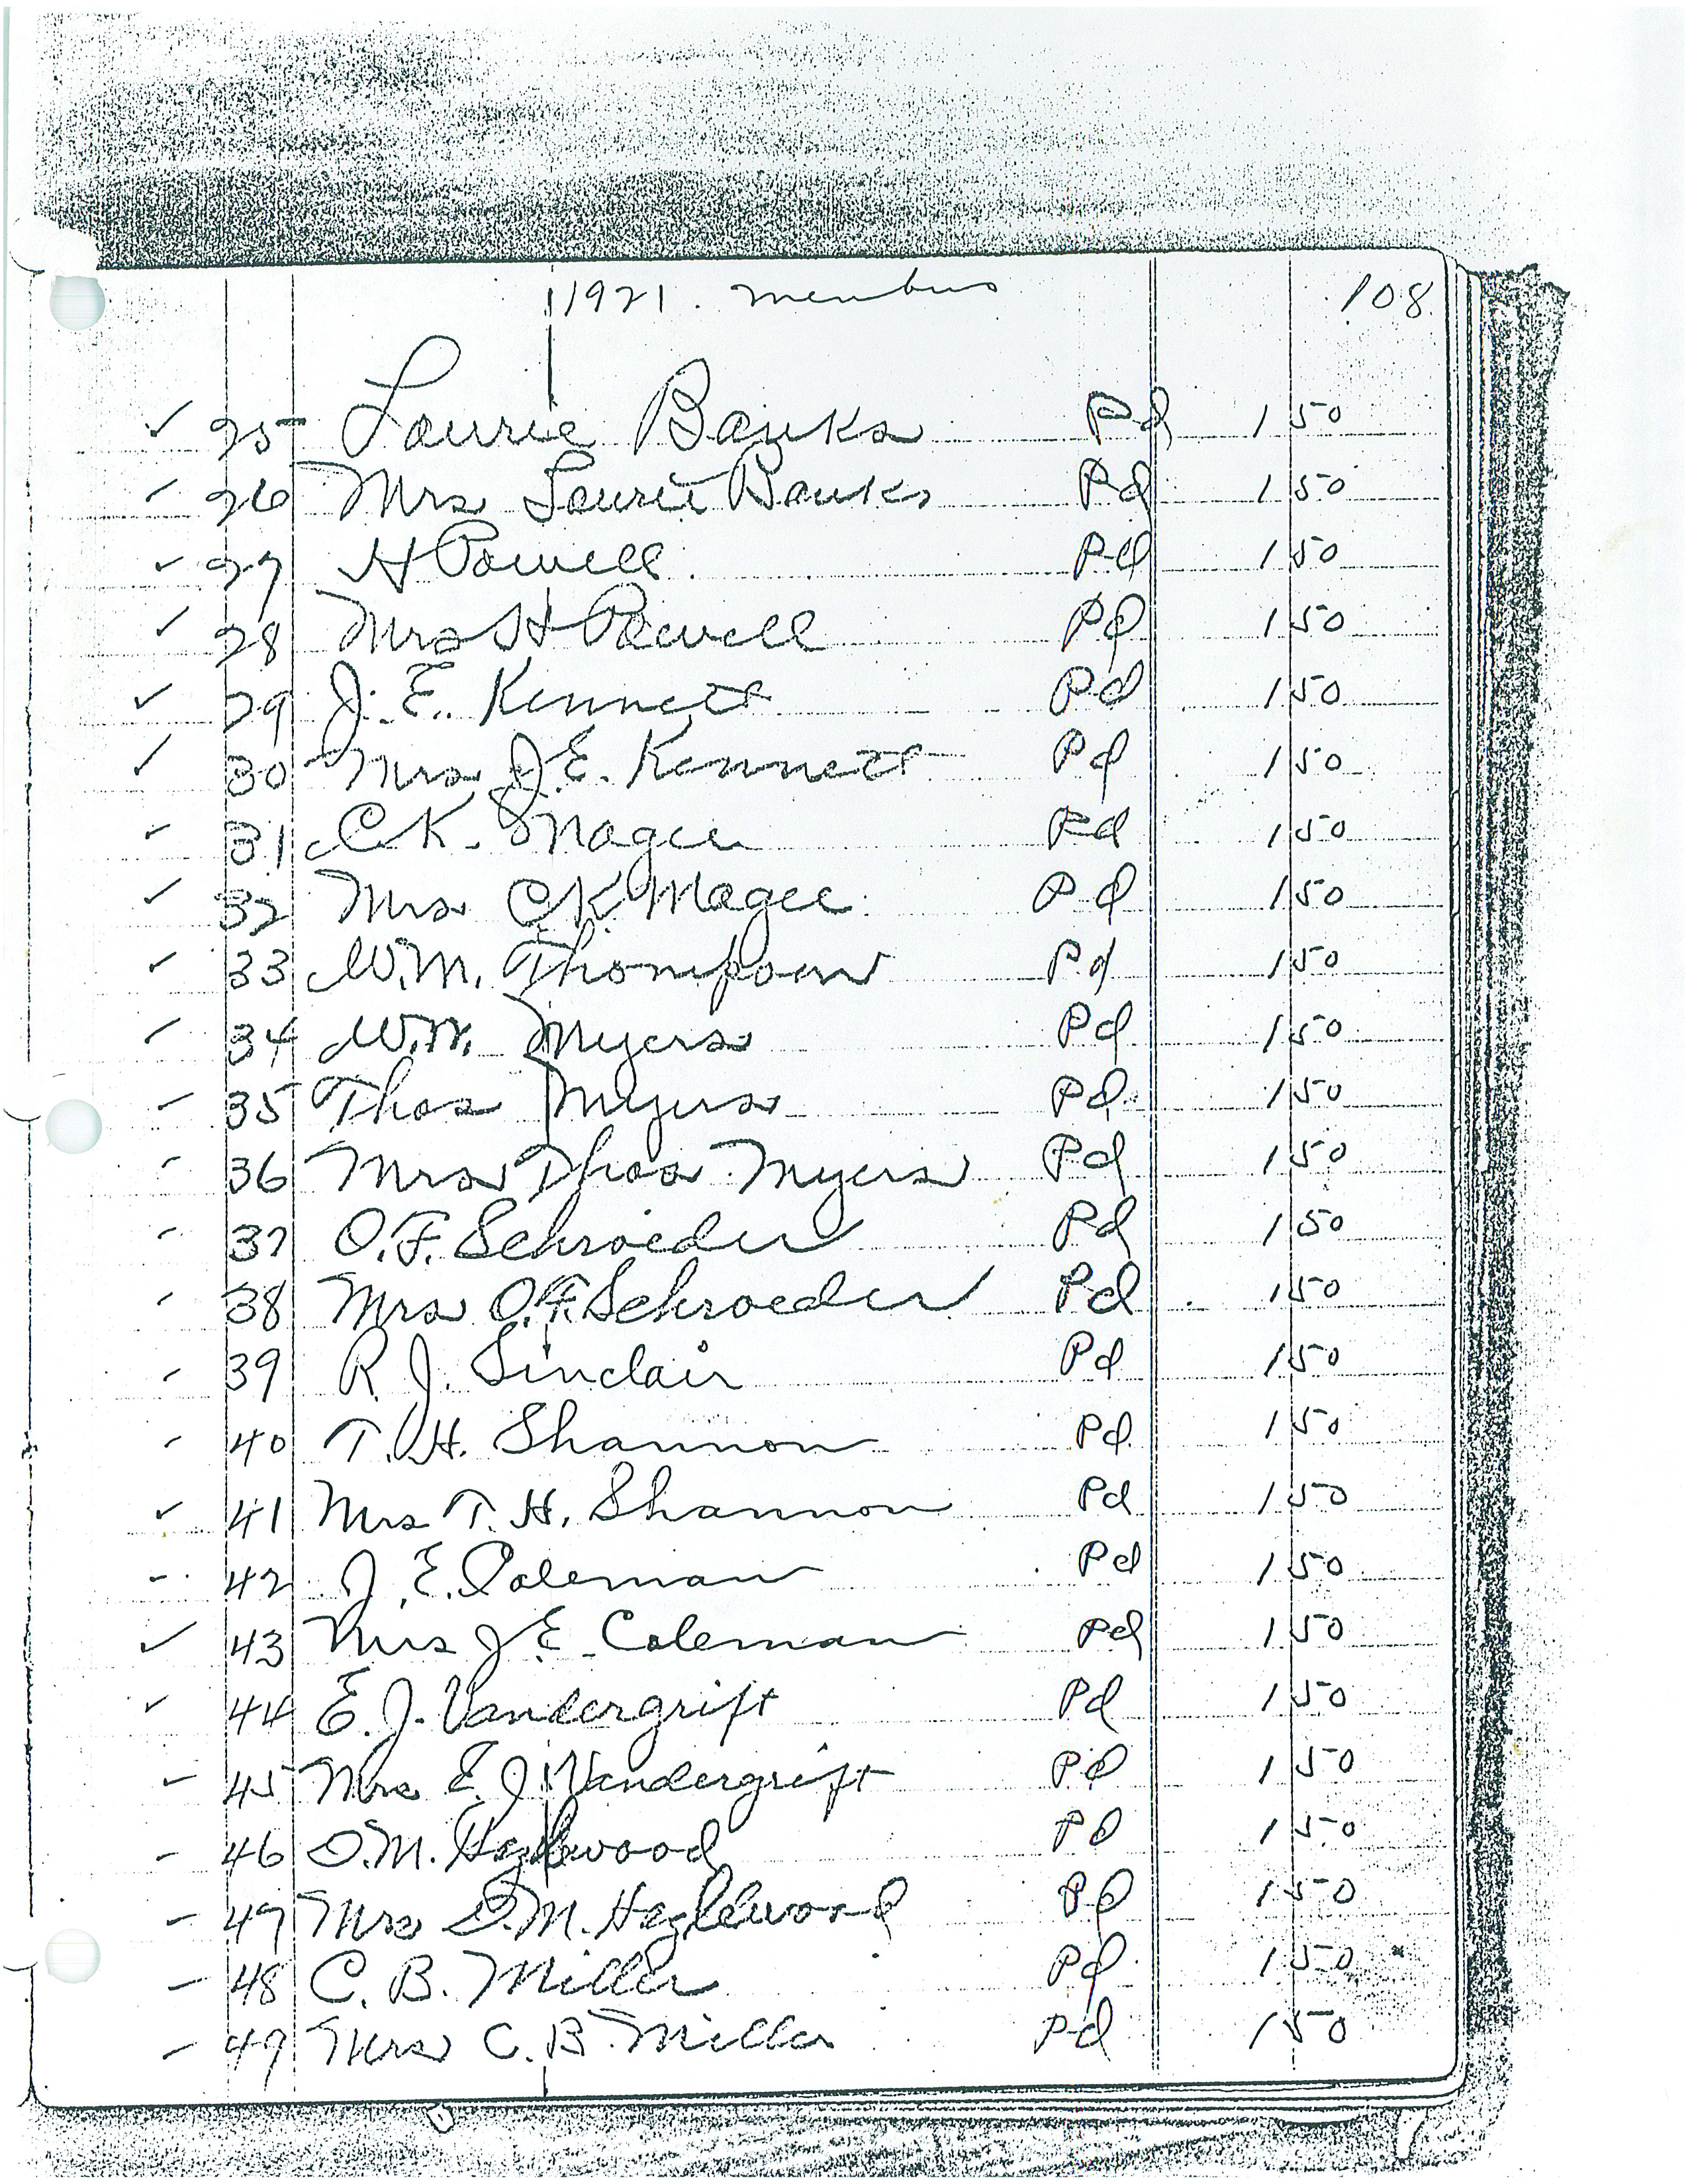 1921. Members 108
25 Laurie Banks Pd 1 50
26 Mrs Laurie Banks Pd 1 50
27 H Powell Pd 1 50
28 Mrs H Powell Pd 1 50
29 J. E. Kennett Pd 1 50
30 Mrs J. E. Kennett Pd 1 50
31 C K. Magee Pd 1 50
32 Mrs C K Magee Pd 1 50
33 W. M. Thompson Pd 1 50
34 W. W. Myers Pd 1 50
35 Thos Myers Pd 1 50
36 Mrs Thos Myers Pd 1 50
37 O. F. Schroeder Pd 1 50
38 Mrs O. F. Schroeder Pd 1 50
39 R. J. Sinclair Pd 1 50
40 T. H. Shannon Pd 1 50
41 Mrs T. H. Shannon Pd 1 50
42 J. E. Coleman Pd 1 50
43 Mrs J. E. Coleman Pd 1 50
44 E. J. Vandergrift Pd 1 50
45 Mrs E. J. Vandergrift Pd 1 50
46 O. M. Hazlewood Pd 1 50
47 Mrs O. M. Hazlewood Pd 1 50
48 C. B. Miller Pd 1 50
49 Mrs C. B. Miller Pd 1 50